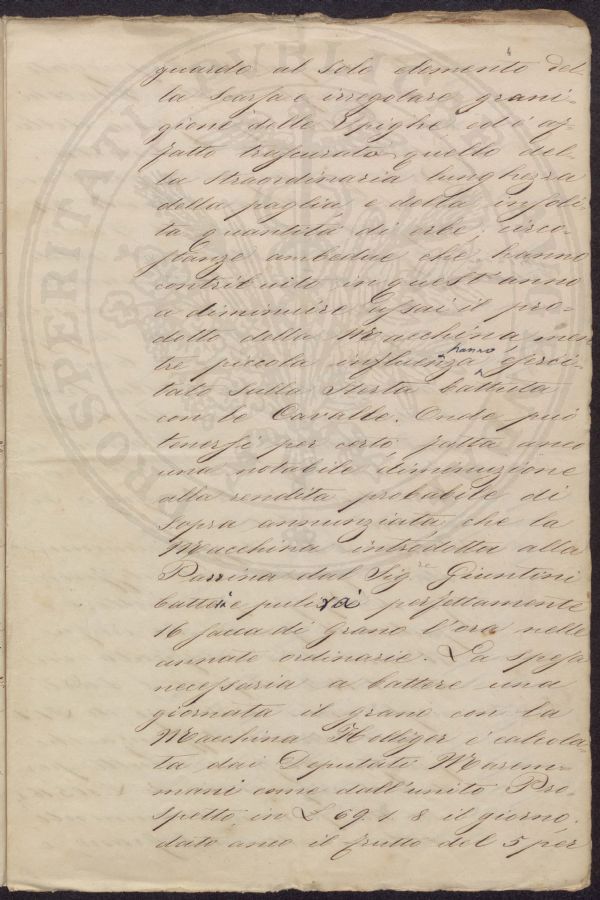 guardo al solo elemento del-
la scarsa e irregolare grani-
gione delle Spighe ed è af-
fatto trascurato quello del-
la straordinaria lunghezza
della paglia, e della infini-
ta quantità di erbe; circo-
stanze ambedue che hanno
contribuito in quest'anno
a diminuire assai il pro-
dotto della Macchina men
tre piccola influenza hanno eserci-
tato sulla Sterta battuta
con le Cavalle. Onde può
tenersi per certo, fatta anco
una notabile diminuzione
alla rendita probabile di
sopra annunziata che la
Macchina introdotta alla
Parrina dal Sig.re Giuntini
batterà e pulirà perfettamente
16 sacca di Grano l'ora nelle
annate ordinarie. La spesa
necessaria a battere una
giornata il grano con la
Macchina Hediger è calcola-
ta dai Deputati Marem-
mani come dall'unito Pro-
spetto in L 69. 1. 8 il giorno;
dato anco il frutto del 5 per
PROSPERITATI PUBLICAE